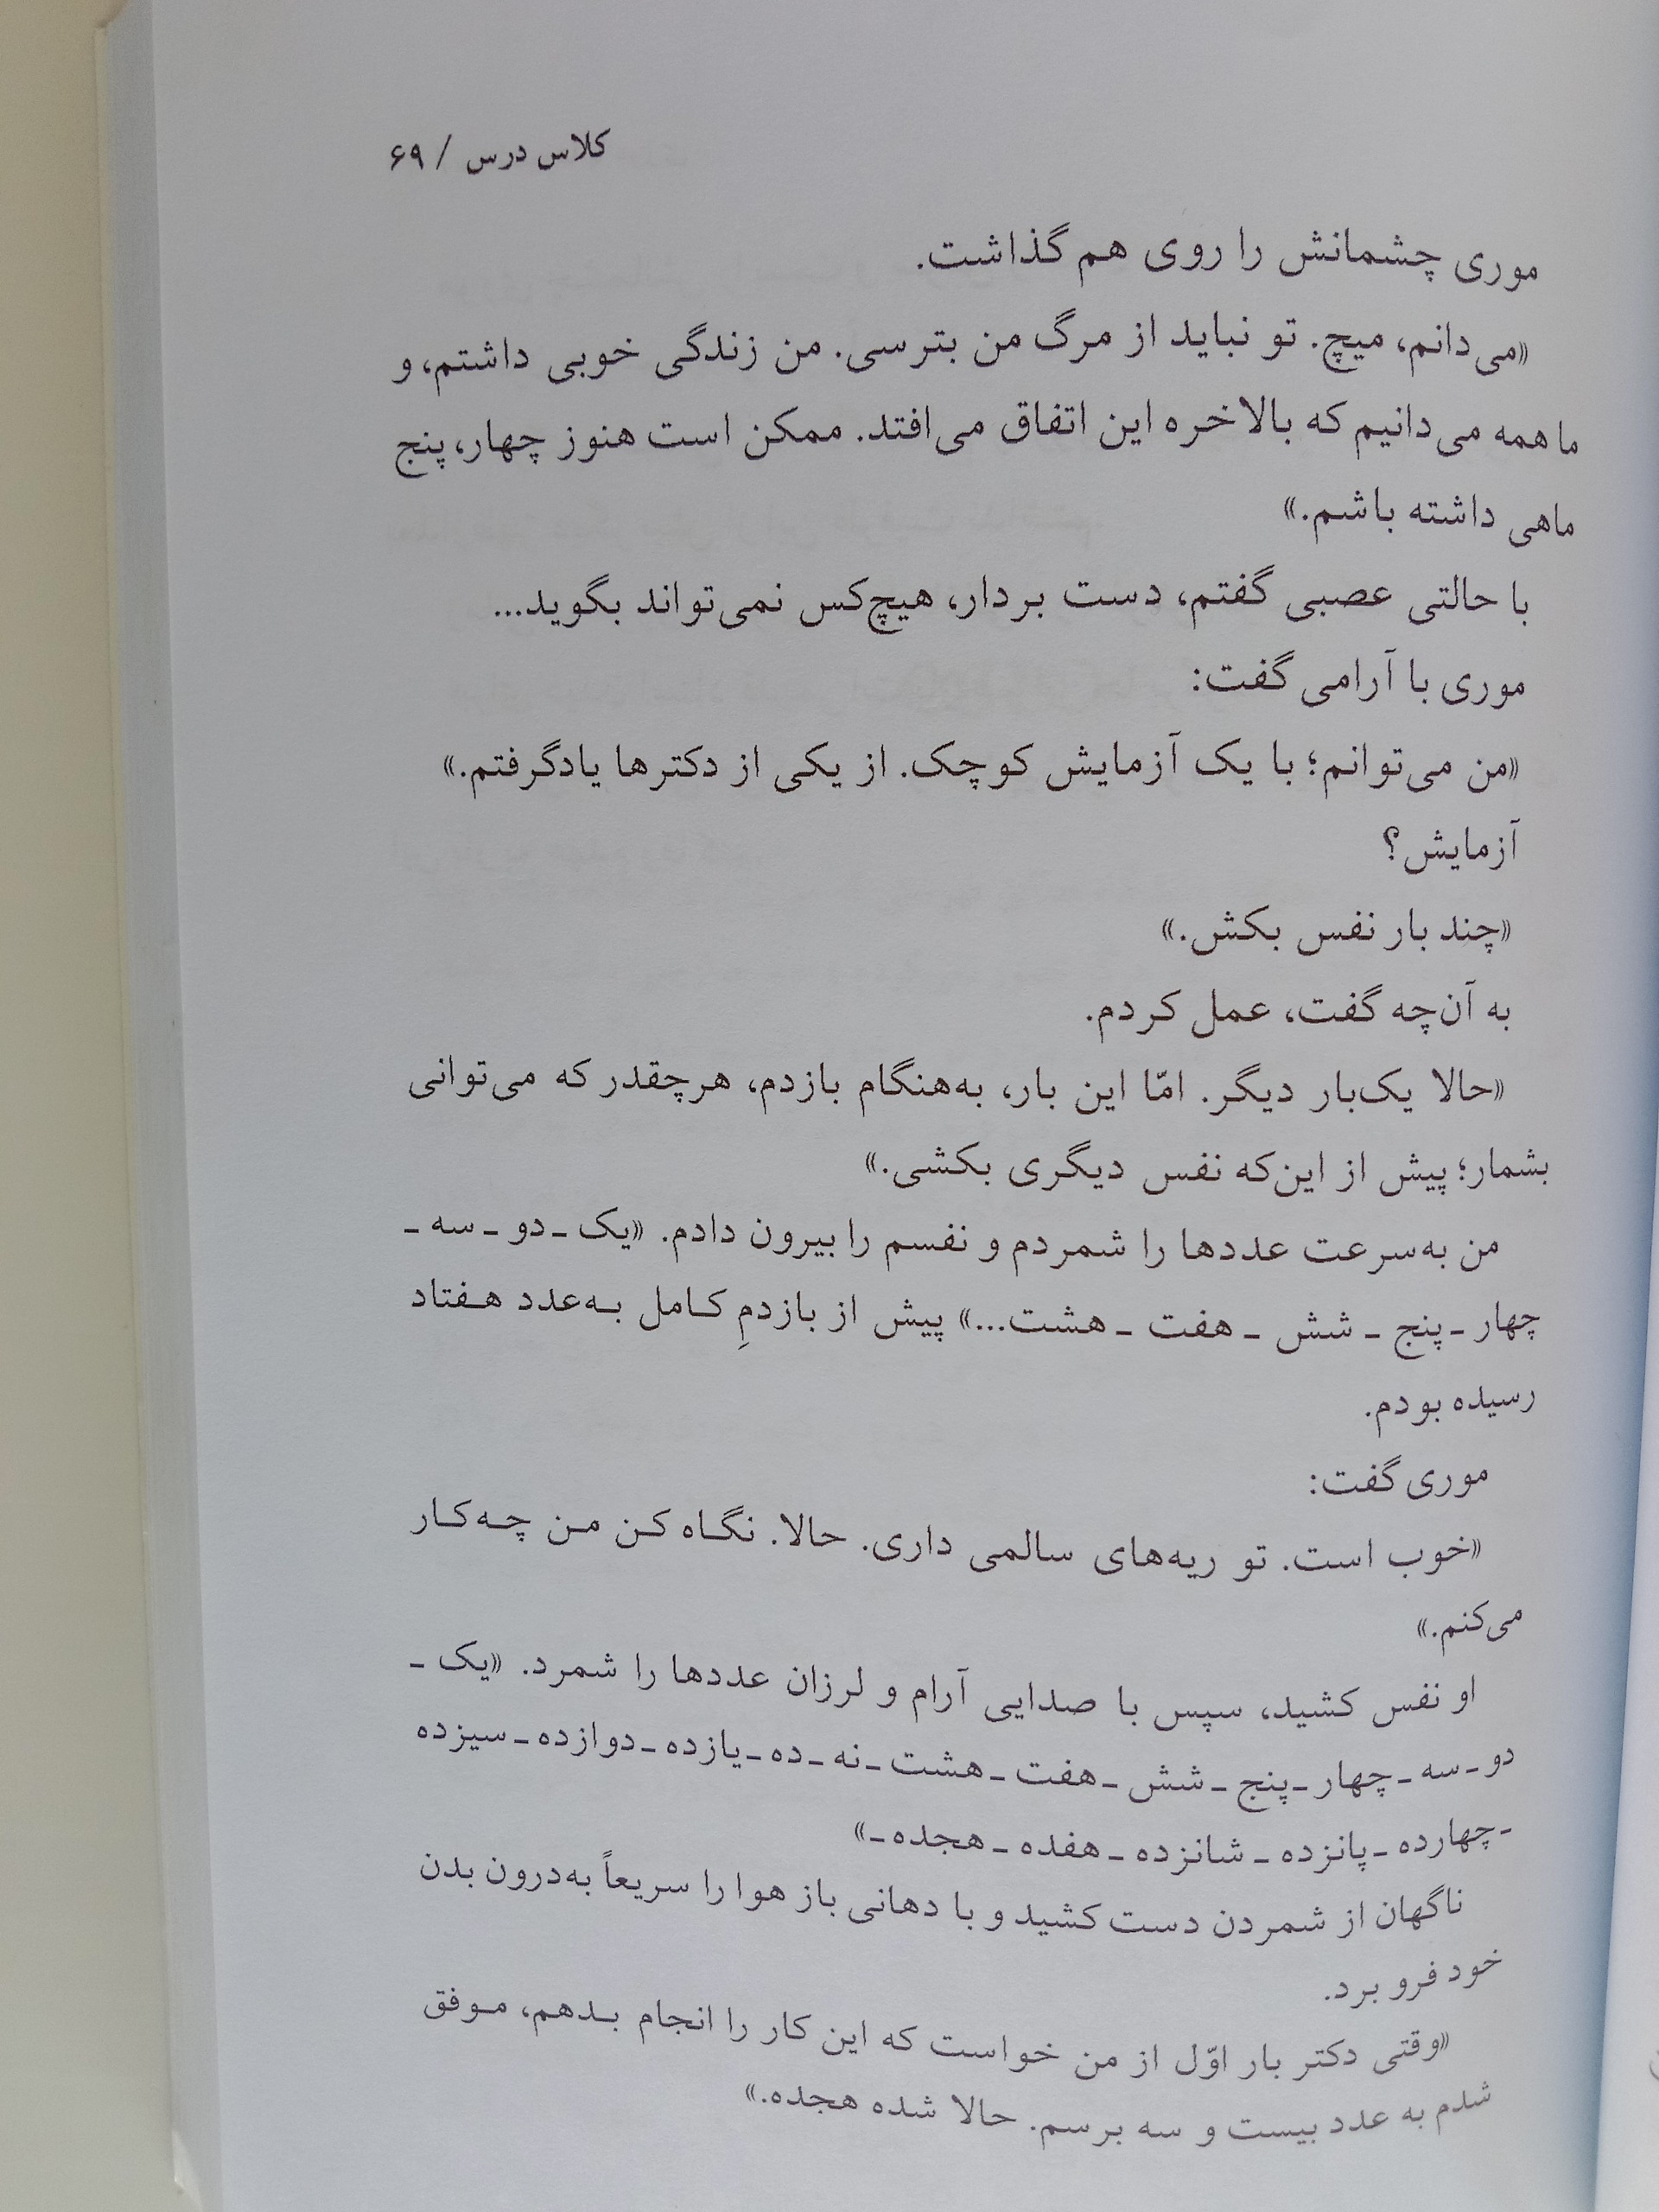 کلاس درس / ۶۹
موری چشمانش را روی هم گذاشت.
«می‌دانم، میچ. تو نباید از مرگ من بترسی. من زندگی خوبی داشتم، و
ما همه می‌دانیم که بالاخره این اتفاق می‌افتد. ممکن است هنوز چهار، پنج
ماهی داشته باشم.»
با حالتی عصبی گفتم، دست بردار، هیچ‌کس نمی‌تواند بگوید...
موری با آرامی گفت:
«من می‌توانم؛ با یک آزمایش کوچک. از یکی از دکترها یادگرفتم.»
آزمایش؟
«چند بار نفس بکش.»
به آن‌چه گفت، عمل کردم.
«حالا یک‌بار دیگر. امّا این بار، به‌هنگام بازدم، هرچقدر که می‌توانی
بشمار؛ پیش از این‌که نفس دیگری بکشی.»
من به‌سرعت عددها را شمردم و نفسم را بیرون دادم. «یک ـ دو ـ سه ـ
چهار ـ پنج ـ شش ـ هفت ـ هشت...» پیش از بازدمِ کامل به‌عدد هفتاد
رسیده بودم.
موری گفت:
«خوب است. تو ریه‌های سالمی داری. حالا. نگاه کن من چه‌کار
می‌کنم.»
او نفس کشید، سپس با صدایی آرام و لرزان عددها را شمرد. «یک ـ
دو ـ سه ـ چهار ـ پنج ـ شش ـ هفت ـ هشت ـ نه ـ ده ـ یازده ـ دوازده ـ سیزده
ـ چهارده ـ پانزده ـ شانزده ـ هفده ـ هجده ـ»
ناگهان از شمردن دست کشید و با دهانی باز هوا را سریعاً به‌درون بدن
خود فرو برد.
«وقتی دکتر بار اوّل از من خواست که این کار را انجام بدهم، موفق
شدم به عدد بیست و سه برسم. حالا شده هجده.»